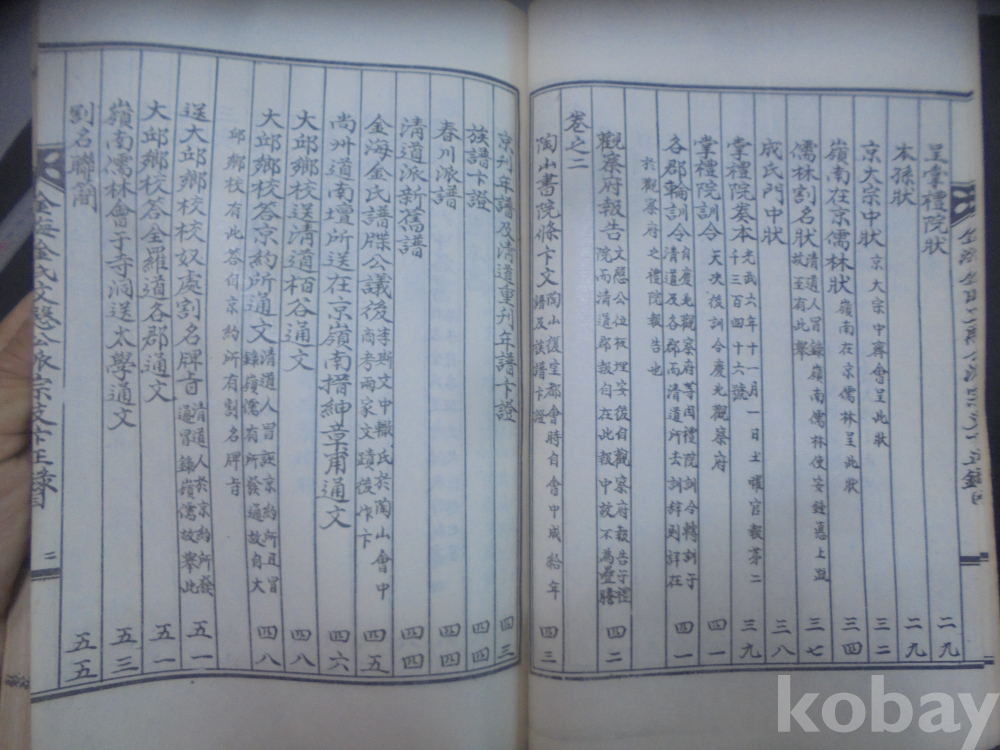 呈掌禮院狀 二九
本孫狀 二九
京大宗中狀 京大宗中齊會呈此狀 三二
嶺南在京儒林狀 嶺南在京儒林呈此狀 三四
儒林割名狀 清道人冒錄嶺南儒林使安鍾悳上 故至有此擧 三七
成氏門中狀 三八
掌禮院奏本 光武六年十一月一日土曜官報第二千三百四十六號 三九
掌禮院訓令 天次後訓令慶光觀察府 四一
各郡輪訓令 自慶光觀察府等因禮院訓令轉訓于清道及各郡而清道所去訓辞則詳在於觀察府之禮院報告也 四一
觀察府報告 文愍公位版埋安後自觀察府報告于禮院而清道郡報自在此報中故不為疊謄 四二
卷之二
陶山書院條卞文 陶山復享都會時自會中成給年譜及族譜卞證 四三
京刊年譜及清道重刊年譜卞證 四三
族譜卞證 四四
春川派譜 四四
清道派新舊譜 四四
金海金氏譜牒公議後 李斯文中轍氏於陶山會中商考兩家文蹟後作卞 四五
尚州道南壇所送在京嶺南搢紳章甫通文 四六
大邱鄉校送清道栢谷通文 四八
大邱鄉校答京約所通文 清道人冒誣京約所且冒錄嶺儒有所發通故自大邱鄉校有此答自京約所有割名牌旨 四八
送大邱鄉校校奴處割名牌音 清道人於京約所發通冒錄嶺儒故擧此 五一
大邱鄉校答全羅道各郡通文 五一
嶺南儒林會于寺洞送太學通文 五三
割名聯簡 五五
金海金氏文愍公派宗支卞正錄目 二
kobay